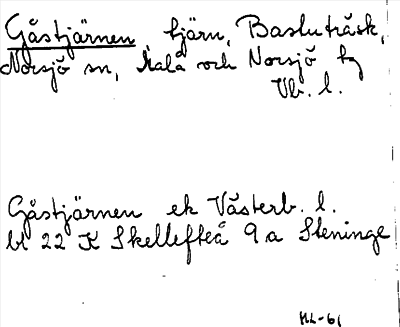 Gåstjärnen tjärn, Bastuträsk,
Norsjö sn, Malå och Norsjö tg
Vb. l.
Gåstjärnen ek Västerb. l.
bl 22 K Skellefteå 9a Steninge
HL-61